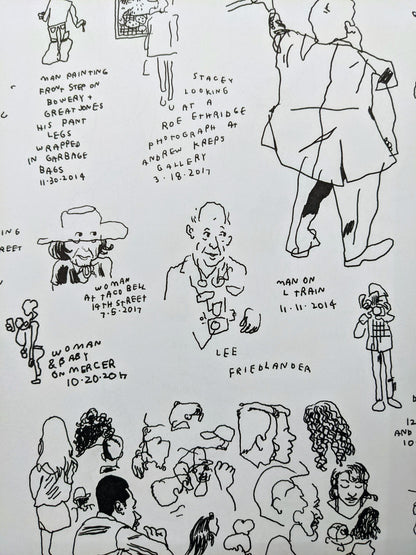 MAN PAINTING
FRONT STEP ON
BOWERY +
GREAT JONES
HIS PANT
LEGS
WRAPPED
IN GARBAGE
BAGS
11.30.2014
STACEY
LOOKING
AT A
ROE ETHRIDGE
PHOTOGRAPH AT
ANDREW KREPS
GALLERY
3.18.2017
ING
REET
WOMAN
AT TACO BELL
14TH STREET
7.5.2017
MAN ON
L TRAIN
11.11.2014
WOMAN
& BABY
ON MERCER
10.20.2017
LEE
FRIEDLANDER
12
AND
10